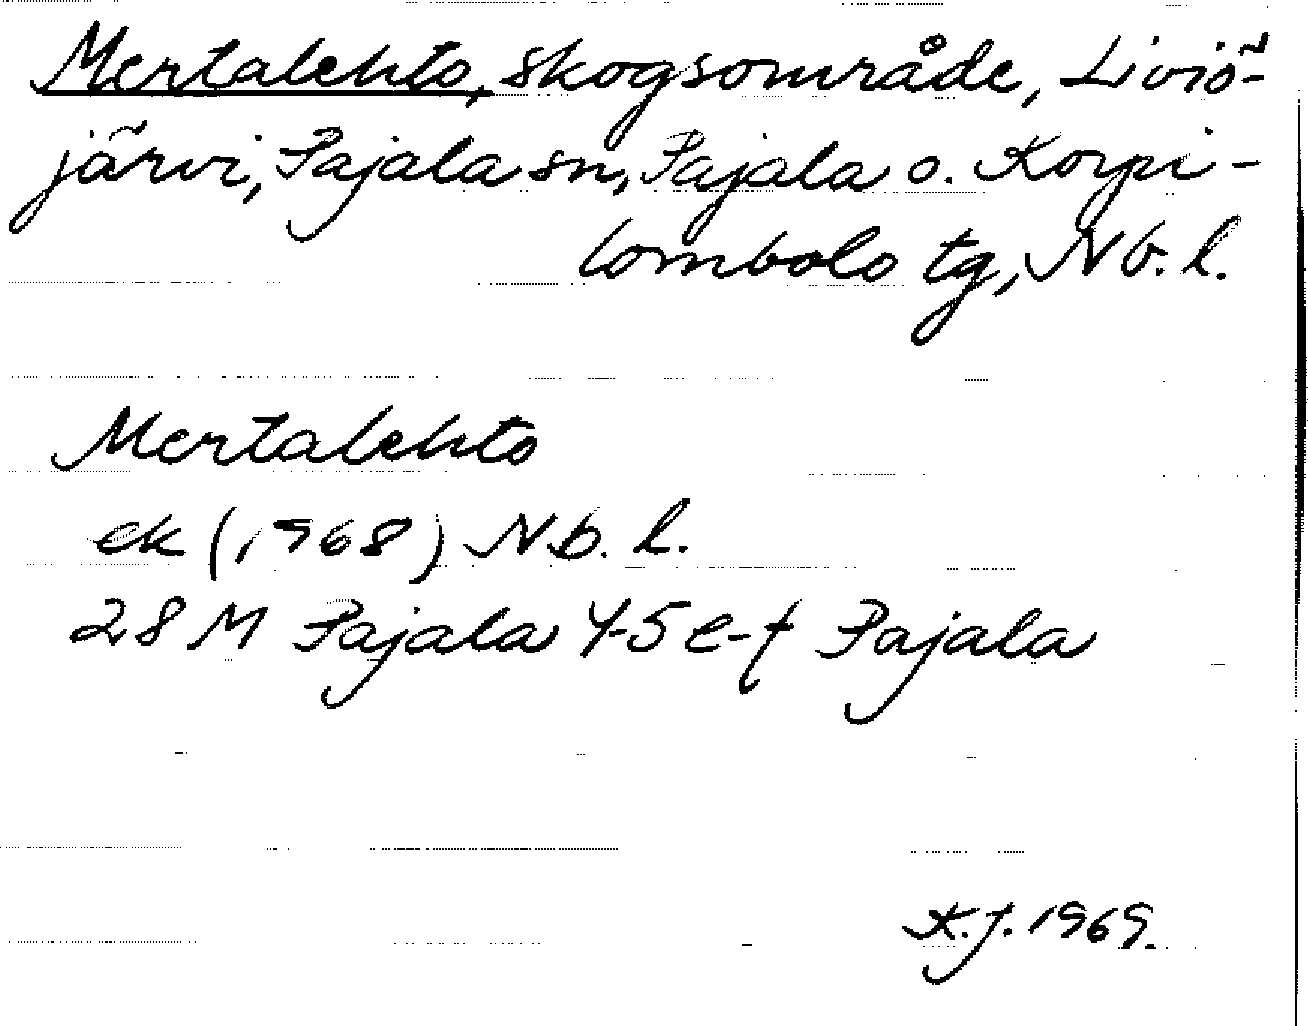 Mertalehto, skogsområde, Liviö-
järvi, Pajala sn, Pajala o. Korpi-
lombolo tg, Nb. l.
Mertalehto
ek (1968) Nb. l.
28 M Pajala 4-5 e-f Pajala
K.J. 1969.